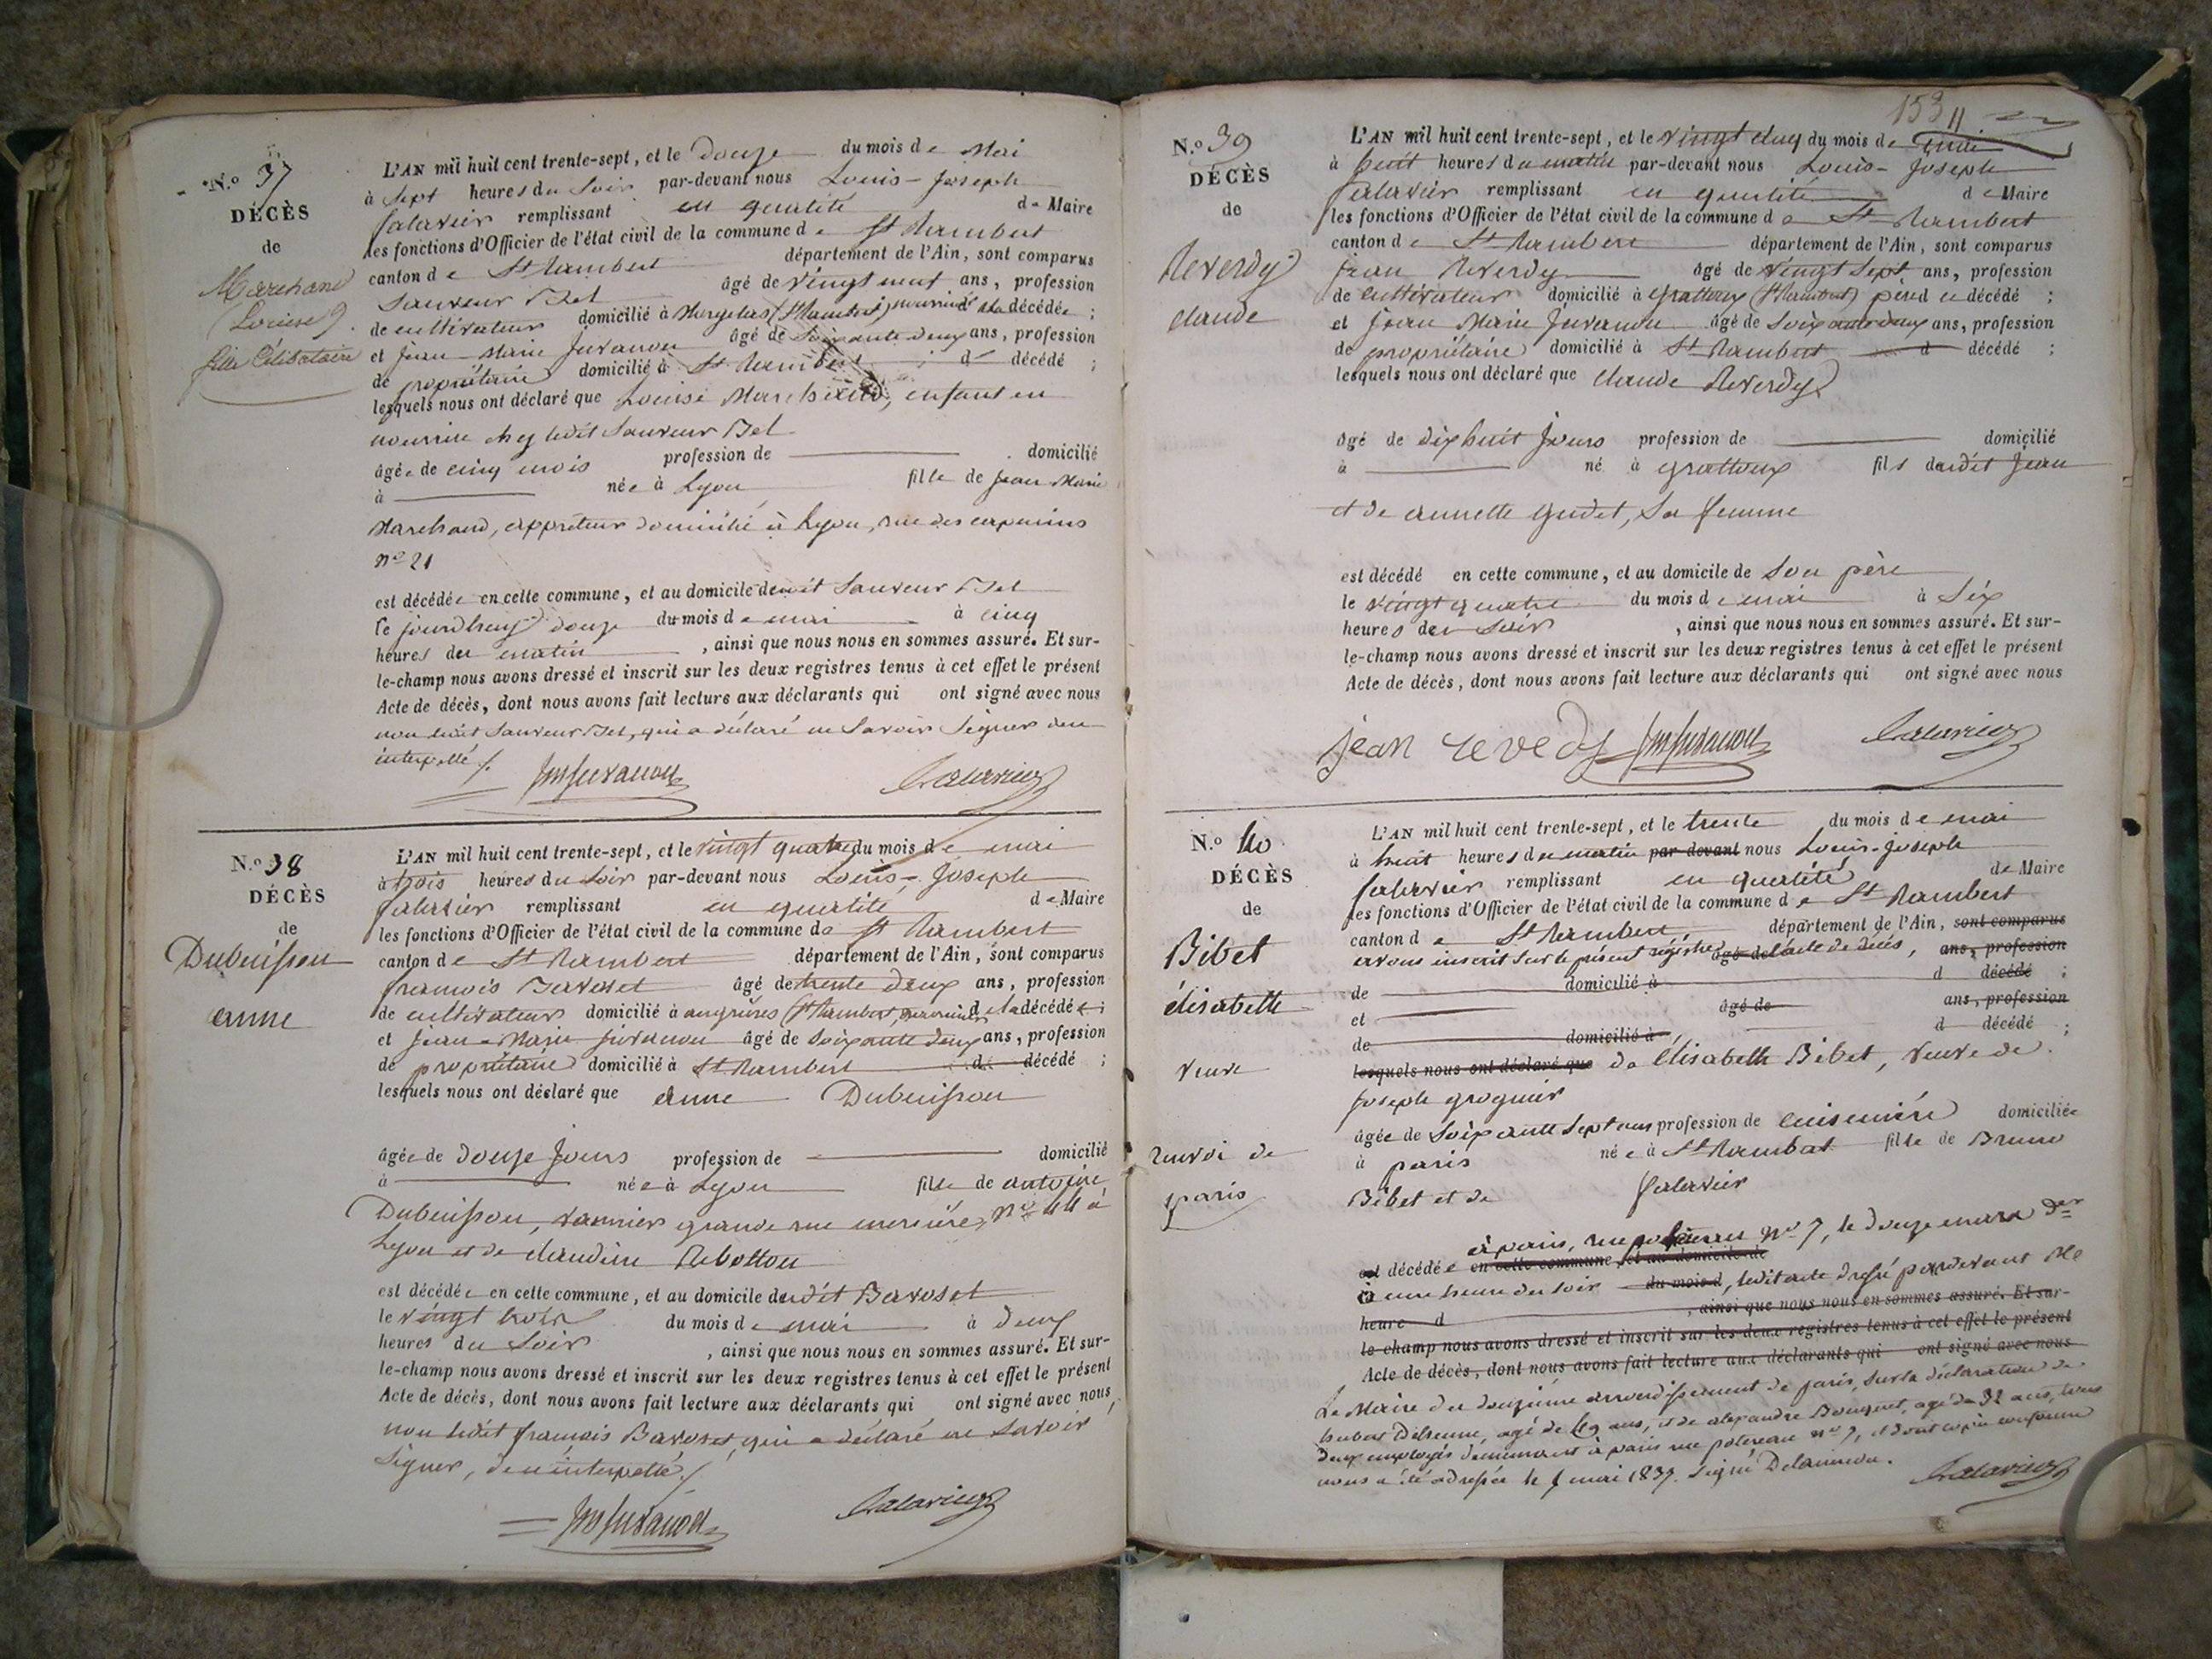 N.º 37
DÉCÈS
de
Marchand
Louise
fille Célibataire
L'AN mil huit cent trente-sept, et le douze du mois de Mai
à sept heures du soir par-devant nous Louis-Joseph
Salavier remplissant en qualité de Maire
les fonctions d'Officier de l'état civil de la commune de St Rambert
canton de St Rambert département de l'Ain, sont comparus
Sauveur Bel âgé de vingt neuf ans, profession
de cultivateur domicilié à (St Rambert) nourricier de la décédée ;
et Jean-Marie Juvanon âgé de soixante deux ans, profession
de propriétaire domicilié à St Rambert d décédé ;
lesquels nous ont déclaré que Louise Marchand, enfant en
nourrice chez ledit Sauveur Bel
âgée de cinq mois profession de domicilié
à née à Lyon fille de Jean Marie
Marchand, appréteur domicilié à Lyon, rue des capucins
nº 21
est décédée en cette commune, et au domicile dudit Sauveur Bel
le jourdhuy douze du mois de mai à cinq
heures du matin, ainsi que nous nous en sommes assuré. Et sur-
le-champ nous avons dressé et inscrit sur les deux registres tenus à cet effet le présent
Acte de décès, dont nous avons fait lecture aux déclarants qui ont signé avec nous
non ledit Sauveur Bel, qui a déclaré ne savoir signer deu
interpellé /.
JM Juvanon Salavier
N.º 38
DÉCÈS
de
Dubuisson
anne
L'AN mil huit cent trente-sept, et le vingt quatre du mois de mai
à trois heures du soir par-devant nous Louis-Joseph
Salavier remplissant en qualité de Maire
les fonctions d'Officier de l'état civil de la commune de St Rambert
canton de St Rambert département de l'Ain, sont comparus
françois Bavoset âgé de trente deux ans, profession
de cultivateur domicilié à angrières (St Rambert, nourricier de la décédée ;
et Jean-Marie Juvanon âgé de soixante deux ans, profession
de propriétaire domicilié à St Rambert d décédé ;
lesquels nous ont déclaré que anne Dubuisson
âgée de douze jours profession de domicilié
à née à Lyon fille de antoine
Dubuisson, vannier grande rue mercière, nº 44 à
Lyon et de claudine Rebotton
est décédée en cette commune, et au domicile dudit Bavoset
le vingt trois du mois de mai à deux
heures du soir, ainsi que nous nous en sommes assuré. Et sur-
le-champ nous avons dressé et inscrit sur les deux registres tenus à cet effet le présent
Acte de décès, dont nous avons fait lecture aux déclarants qui ont signé avec nous,
non ledit françois Bavoset, qui a déclaré ne savoir
signer, deu interpellé /.
JM Juvanon Salavier
153
N.º 39
DÉCÈS
de
Reverdy
claude
L'AN mil huit cent trente-sept, et le vingt cinq du mois de mai
à huit heures du matin par-devant nous Louis-Joseph
Salavier remplissant en qualité de Maire
les fonctions d'Officier de l'état civil de la commune de St Rambert
canton de St Rambert département de l'Ain, sont comparus
jean Reverdy âgé de vingt sept ans, profession
de cultivateur domicilié à grattoux (St Rambert) père d u décédé ;
et jean Marie Juvanon âgé de soixante deux ans, profession
de propriétaire domicilié à St Rambert d décédé ;
lesquels nous ont déclaré que claude Reverdy
âgé de dix huit jours profession de domicilié
à né à grattoux fils dudit Jean
et de annette gudet, sa femme
est décédé en cette commune, et au domicile de son père
le vingt quatre du mois de mai à six
heures du soir, ainsi que nous nous en sommes assuré. Et sur-
le-champ nous avons dressé et inscrit sur les deux registres tenus à cet effet le présent
Acte de décès, dont nous avons fait lecture aux déclarants qui ont signé avec nous
jean revedy JM Juvanon Salavier
N.º 40
DÉCÈS
de
Bibet
élisabeth
veuve
renvoi de
paris
L'AN mil huit cent trente-sept, et le trente du mois de mai
à huit heures du matin par-devant nous Louis-Joseph
Salavier remplissant en qualité de Maire
les fonctions d'Officier de l'état civil de la commune de St Rambert
canton de St Rambert, département de l'Ain, sont comparus
avons inscrit sur le présent régistre âgé de l'acte de décès, ans, profession
de domicilié à d décédé ;
et âgé de ans, profession
de domicilié à d décédé ;
lesquels nous ont déclaré que de élisabeth Bibet, veuve de
Joseph grognier
âgée de soixante sept ans profession de cuisinière domiciliée
à paris née à St Rambert fille de Bruno
Bibet et de Salavier
à paris, rue nº 7, le douze mars der
est décédée en cette commune, et au domicile de
à une heure du soir du mois d, ledit acte dressé pardevant Mr
heure d, ainsi que nous nous en sommes assuré. Et sur-
le-champ nous avons dressé et inscrit sur les deux registres tenus à cet effet le présent
Acte de décès, dont nous avons fait lecture aux déclarants qui ont signé avec nous
Le Maire du douzième arrondissement de paris, sur la déclaration de
hubert agé de 49 ans, et de alexandre Bouquet, agé de 32 ans, tous
deux employés demeurant à paris rue nº 7, et dont copie conforme
nous a été adressée le 7 mai 1837. signé Delanneau.
Salavier